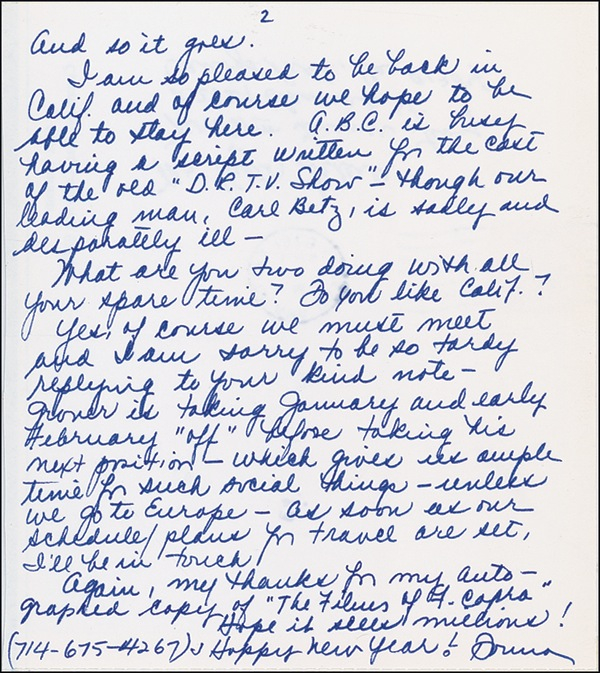 2
And so it goes.
I am so pleased to be back in
Calif. and of course we hope to be
able to stay here. A.B.C. is busy
having a script written for the cast
of the old "D.R. T.V. Show" - though our
leading man, Carl Betz, is sadly and
desparately ill -
What are you two doing with all
your spare time? Do you like Calif.?
Yes, of course we must meet
and I am sorry to be so tardy
replying to your kind note -
Grover is taking January and early
February "off" before taking his
next position - which gives us ample
time for such social things - unless
we go to Europe - as soon as our
schedule/plans for travel are set,
I'll be in touch
Again, my thanks for my auto-
graphed copy of "The Films of F. Capra"
Hope it sells millions!
(714-675-4267) Happy New Year! Donna